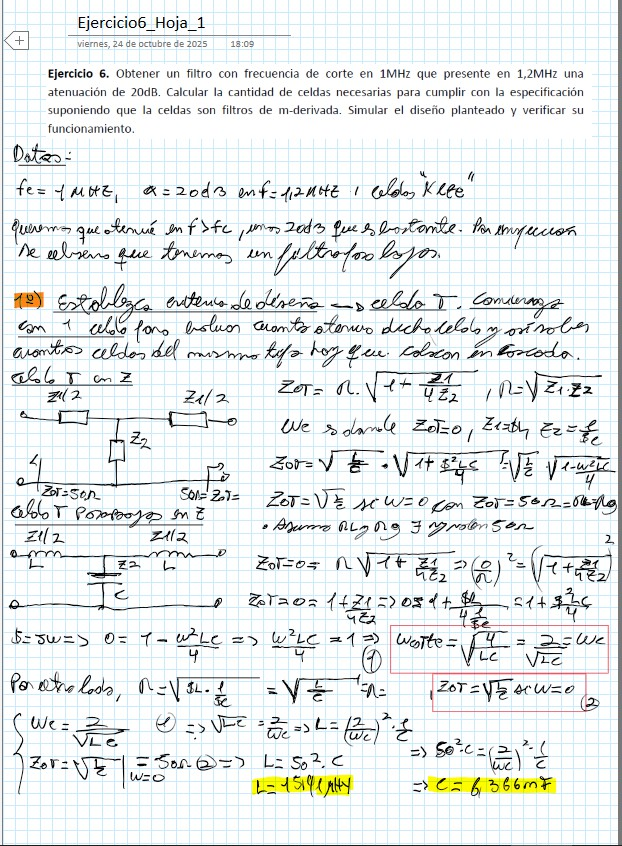 Ejercicio6_Hoja_1
viernes, 24 de octubre de 2025 18:09
Ejercicio 6. Obtener un filtro con frecuencia de corte en 1MHz que presente en 1,2MHz una
atenuación de 20dB. Calcular la cantidad de celdas necesarias para cumplir con la especificación
suponiendo que la celdas son filtros de m-derivada. Simular el diseño planteado y verificar su
funcionamiento.
Datos:
fc = 1 MHz, α = 20dB en f = 1,2MHz, celdas "K cte"
queremos que atenué en f>fc, unos 20dB que es bastante. Por
se observa que tenemos un filtro paso bajos.
1º) Establezco criterio de diseño → celda T. Comienzo
con 1 celda para evaluar cuanto atenua dicha celda y así saber
cuantas celdas del mismo tipo hay que colocar en cascada.
Celda T en Z
Z1/2 Z1/2
Z2
ZoT=50Ω 50Ω=ZoT=
ZoT = R·√(1+Z1/4Z2), R=√(Z1·Z2)
Wc es donde ZoT=0, Z1=$L, Z2=1/$C
ZoT=√(L/C)·√(1+$²LC/4)=√(L/C) √(1-w²LC/4)
ZoT=√(L/C) si W=0 con ZoT=50Ω=RL=Rg
• Asumo RL y Rg ∃ y valen 50Ω
Celda T Paso bajos en Z
Z1/2 Z1/2
L Z2 L
C
ZoT=0= R√(1+Z1/4Z2) ⇒ (0/R)²=(√(1+Z1/4Z2))²
ZoT=0 = 1+Z1/4Z2 ⇒ 0=1+$L/(4·1/$C) = 1+$²LC/4
$=jw ⇒ 0=1-w²LC/4 ⇒ w²LC/4=1 ⇒ ① Wcorte=√(4/LC)=2/√LC=Wc
Por otro lado, R=√($L·1/$C) = √(L/C) =R= , ZoT=√(L/C) si W=0 ②
Wc=2/√LC ① ⇒ √LC=2/Wc ⇒ L=(2/Wc)²·1/C
ZoT=√(L/C)|W=0 = 50Ω ② ⇒ L=50²·C
⇒ 50²·C=(2/Wc)²·1/C
L=15,91μHy
⇒ C=6,366nF